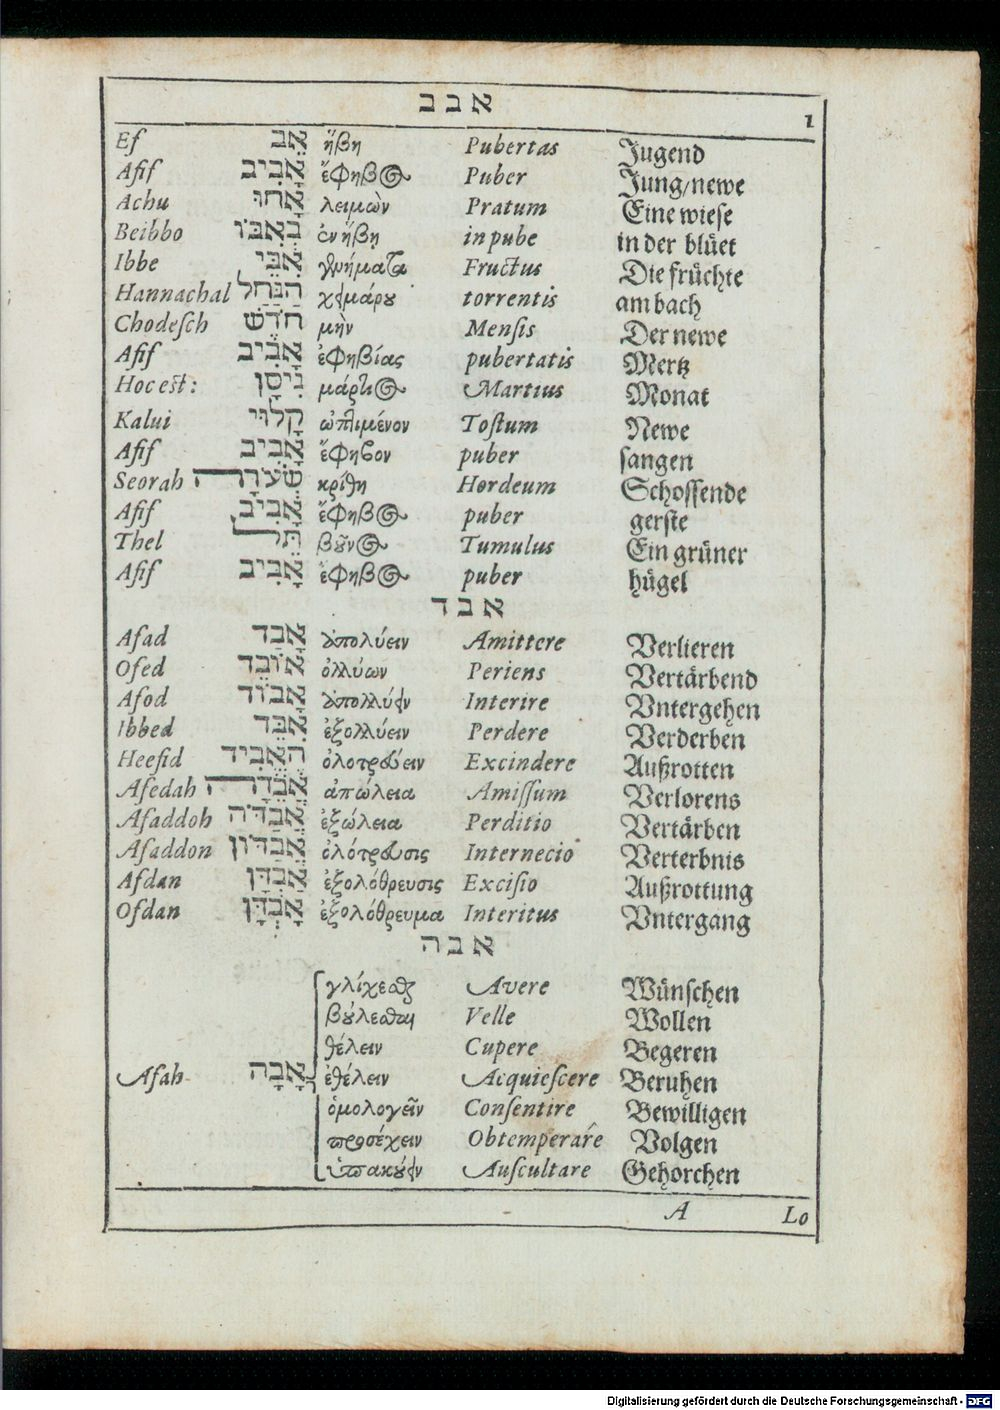 אבב 1
Ef אֵב ἥβη Pubertas Jugend
Afif אָבִיב ἔφηβος Puber Jung/newe
Achu אָחוּ λειμὼν Pratum Eine wiese
Beibbo בְאִבּוֹ ἐν ἥβῃ in pube in der blüet
Ibbe אִבֵּי γεννήματα Fructus Die früchte
Hannachal הַנַּחַל χειμάρου torrentis am bach
Chodesch חֹדֶשׁ μὴν Mensis Der newe
Afif אָבִיב ἐφηβίας pubertatis Mertz
Hoc est: נִיסָן μάρτιος Martius Monat
Kalui קָלוּי ὠπτιμένον Tostum Newe
Afif אָבִיב ἔφηβον puber sangen
Seorah שְׂעֹרָה κρίθη Hordeum Schossende
Afif אָבִיב ἔφηβος puber gerste
Thel תֵּל βοῦνος Tumulus Ein grüner
Afif אָבִיב ἐφηβος puber hügel
אבד
Afad אָבַד ἀπολύειν Amittere Verlieren
Ofed אוֹבֵד ὀλλύων Periens Vertärbend
Afod אָבוֹד ἀπολλύειν Interire Vntergehen
Ibbed אִבֵּד ἐξολλύειν Perdere Verderben
Heefid הֶאֱבִיד ὀλοτρεύειν Excindere Außrotten
Afedah אֲבֵדָה ἀπώλεια Amissum Verlorens
Afaddoh אֲבַדֹּה ἐξώλεια Perditio Vertärben
Afaddon אֲבַדּוֹן ὀλότρευσις Internecio Verterbnis
Afdan אַבְדָן ἐξολόθρευσις Excisio Außrottung
Ofdan אָבְדָן ἐξολόθρευμα Interitus Vntergang
אבה
γλίχεσθαι Avere Wünschen
βούλεσθαι Velle Wollen
θέλειν Cupere Begeren
Afah אָבָה ἐθέλειν Acquiescere Beruhen
ὁμολογεῖν Consentire Bewilligen
προσέχειν Obtemperare Volgen
ὑπακούειν Auscultare Gehorchen
A Lo
Digitalisierung gefördert durch die Deutsche Forschungsgemeinschaft - DFG